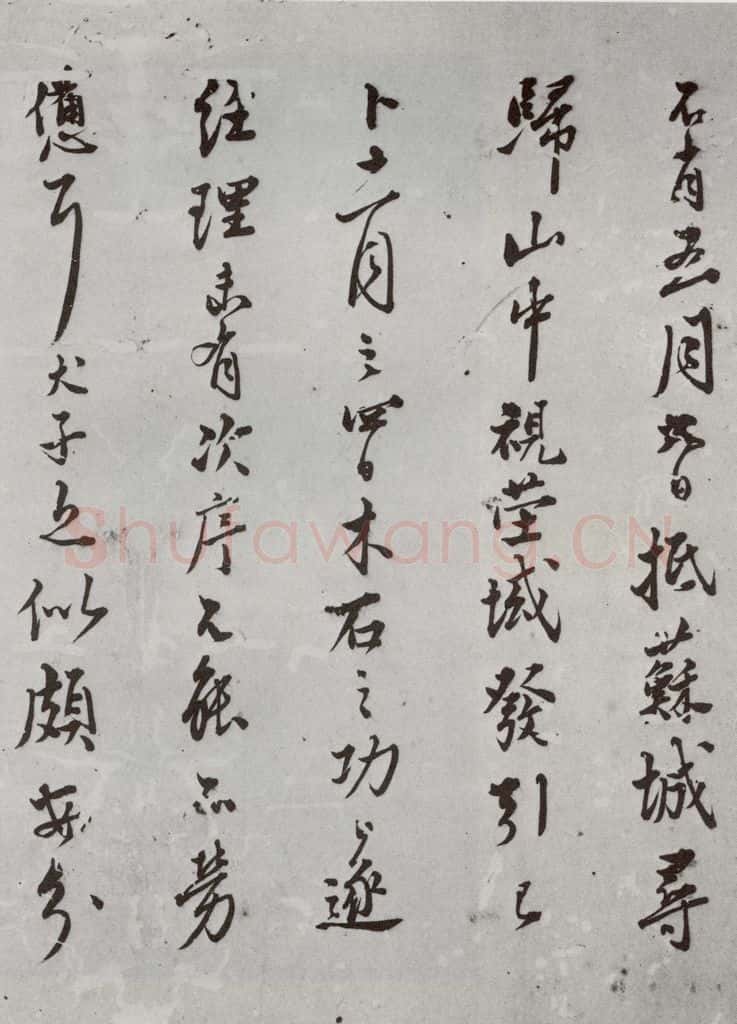 不肖五月日抵蘇城尋
歸山中視塋域發引已
卜十一月之四日木石之功遂
經理未有次序不能不勞
憊耳犬子近似頗安分
Shufawang.CN